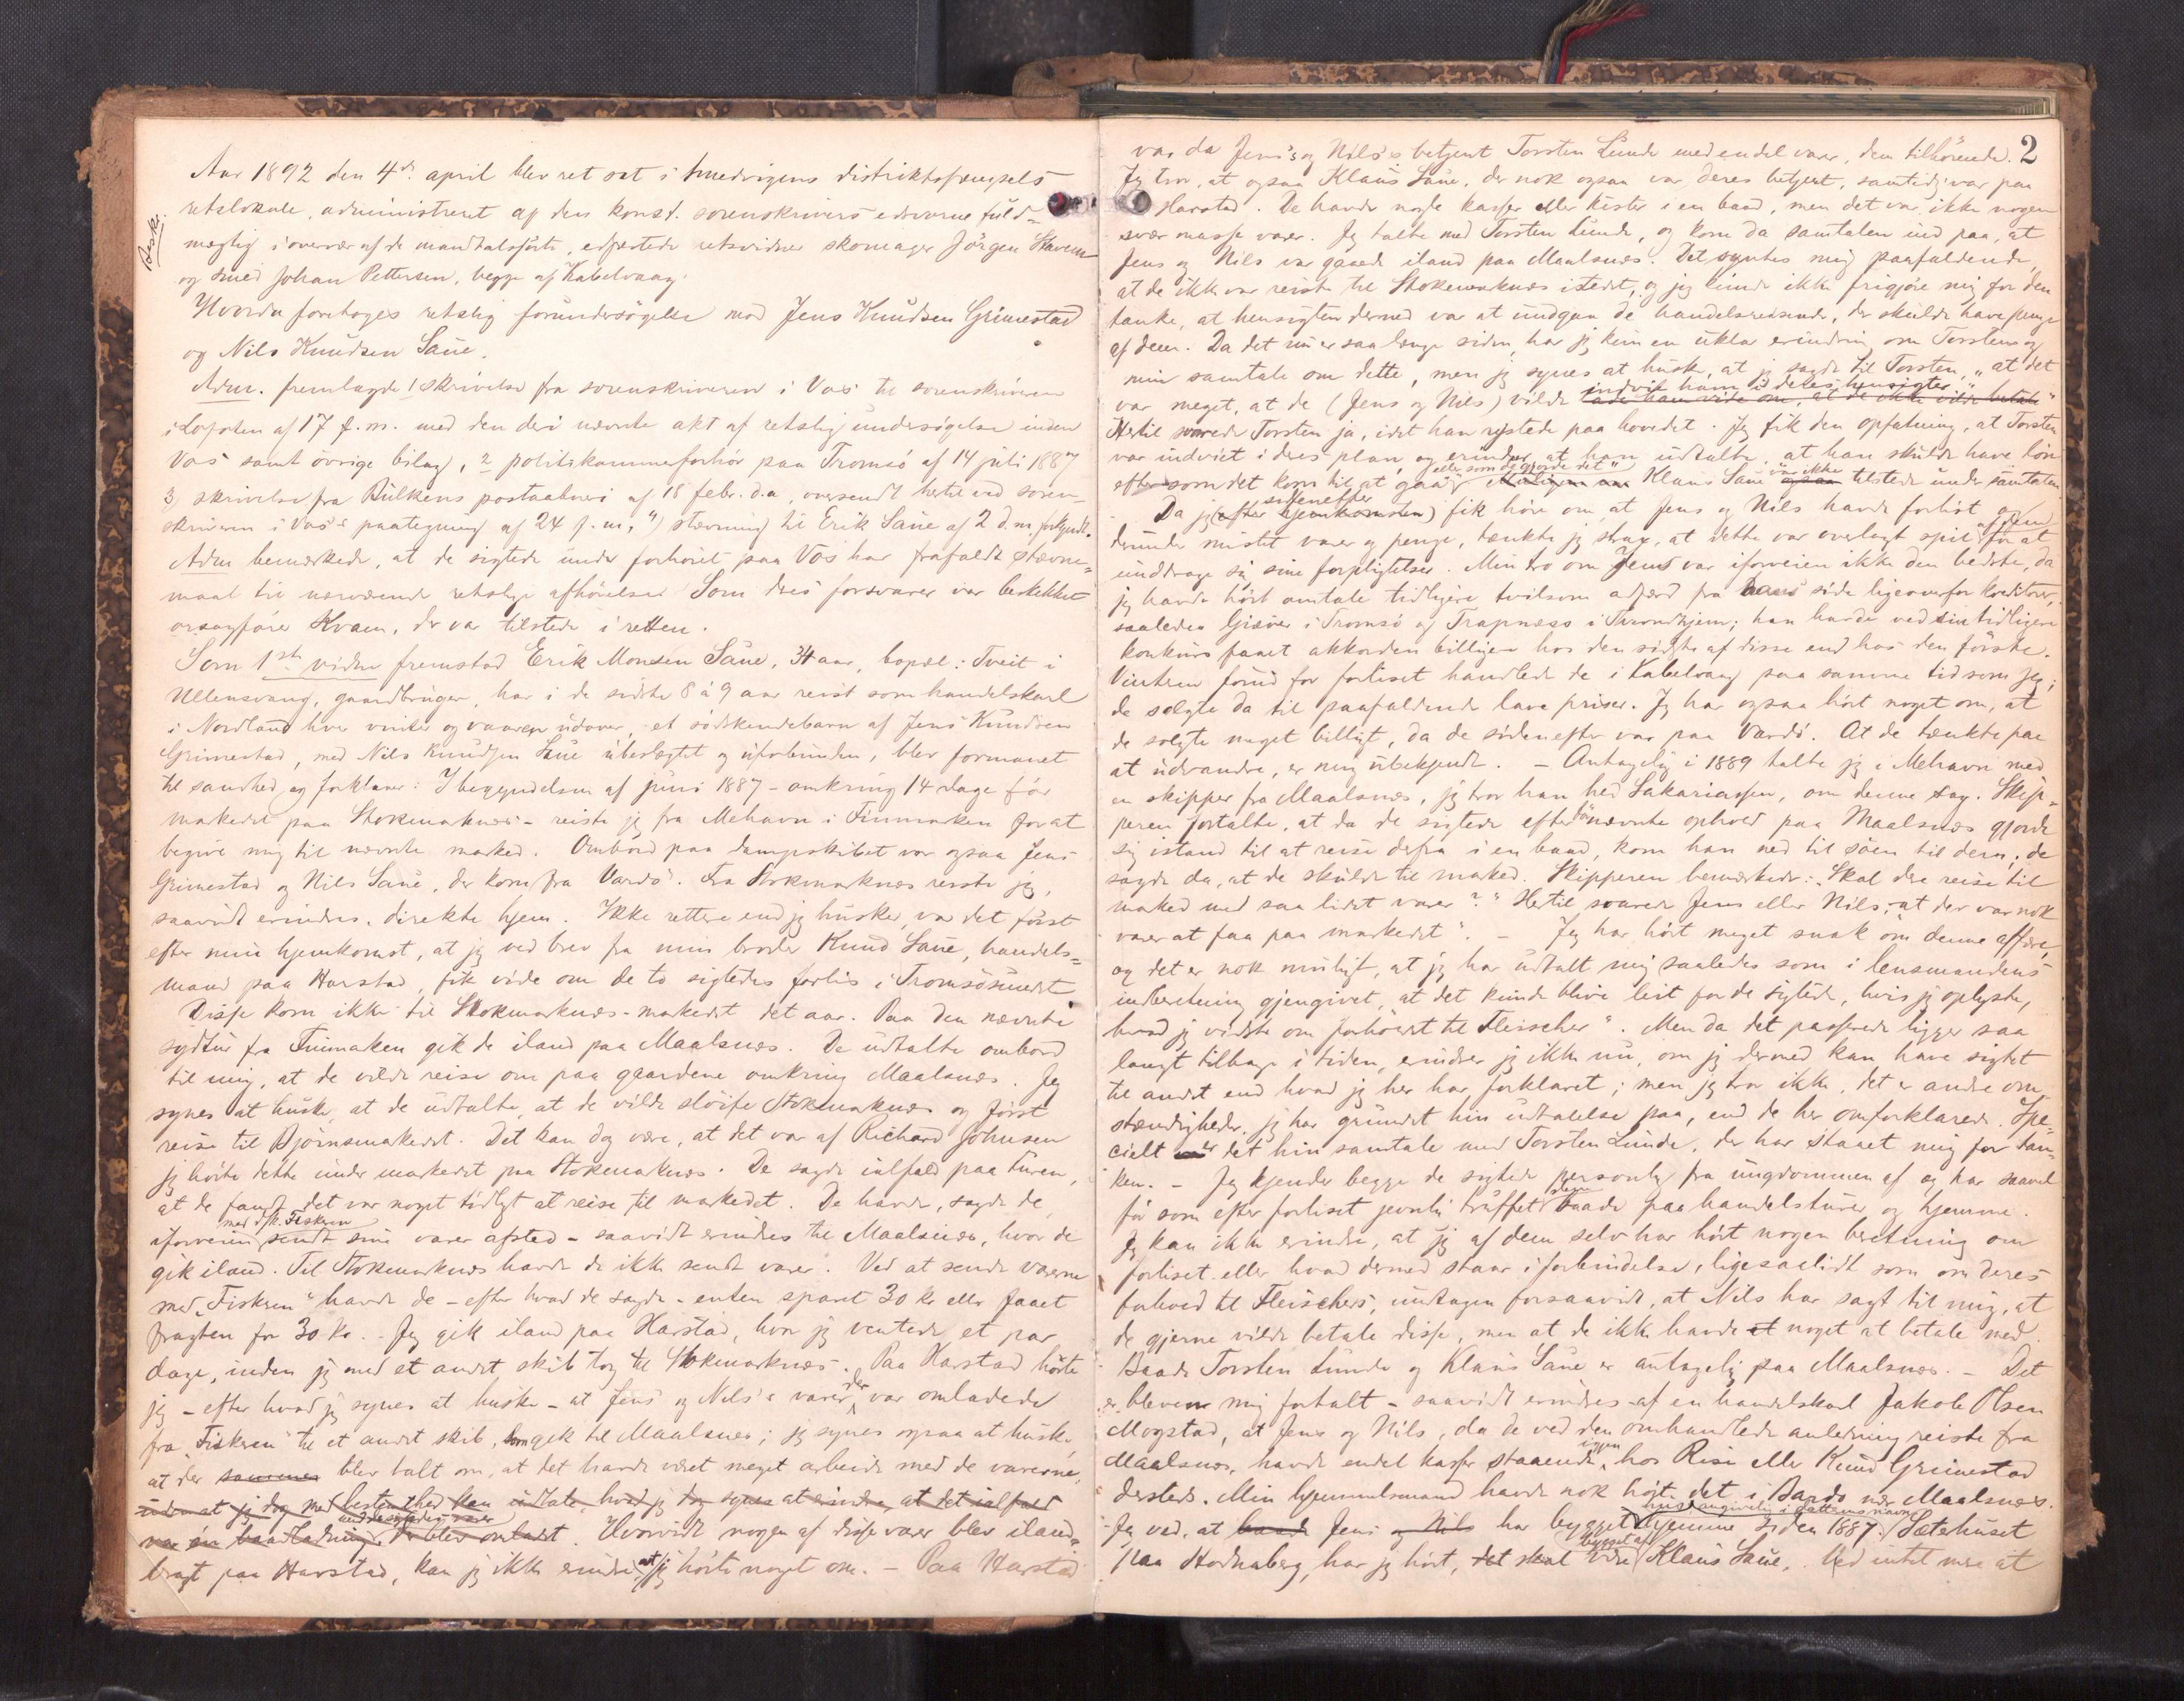 Aar 1892 den 4de april blev ret sat i Smedvigens distriktsfængsels
retslokale, administreret af den konst. sorenskrivers edsvorne fuld-
mægtig i overvær af de mandtalsførte, edfæstede retsvidner skomager Jörgen Stavem
og smed Johan Pettersen, begge af Kabelvaag.
Hvorda foretoges retslig forundersögelse mod Jens Knudsen Grimestad
og Nils Knudsen Saue.
Adm. fremlagde 1 skrivelse fra sorenskriveren i Vos til sorenskriveren
i Lofoten af 17 f.m. med den deri nævnte akt af retslig undersögelse inden
Vos samt övrige bilag, 2 politikammerforhör paa Tromsö af 14 juli 1887
3, skrivelse fra Bulkens postaabneri af 18 febr. d.a, oversendt hertil ved soren-
skriveren i Vos's paategning af 24 f.m., 4) stævning til Erik Saue af 2 d.m. forkyndt.
Adm bemærkede, at de sigtede under forhöret paa Vos har frafaldt stævne-
maal til nærværende retslige afhörelse. Som deres forsvarer var beskikket
orsagförer Kvam, der var tilstede i retten.
Som 1ste vidne fremstod Erik Monsen Saue, 34 aar, bopæl: Tveit i
Ullensvang, gaardbruger, har i de sidste 8 à 9 aar reist som handelskarl
i Nordland hver vinter og vaaren udover, et södskendebarn af Jens Knudsen
Grimestad, med Nils Knudsen Saue ubeslægtet og uforbunden, blev formanet
til sandhed og forklarer: I begyndelsen af juni 1887 - omkring 14 dage för
markedet paa Stokmarknes - reiste jeg fra Mehavn i Finmarken for at
begive mig til nævnte marked. Ombord paa dampskibet var ogsaa Jens
Grimestad og Nils Saue, der kom fra Vardö. Fra Stokmarknes reiste jeg,
saavidt erindres, direkte hjem. Ikke rettere end jeg husker, var det först
efter min hjemkomst, at jeg ved brev fra min broder Knud Saue, handels-
mand paa Harstad, fik vide om de to sigtedes forlis i Tromsösundet.
Disse kom ikke til Stokmarknes-markedet det aar. Paa den nævnte
sydtur fra Finmarken gik de iland paa Maalsnes. De udtalte ombord
til mig, at de vilde reise om paa gaardene omkring Maalsnes. Jeg
synes at huske, at de udtalte, at de vilde slöife Stokmarknes og först
reise til Bjørnsmarkedet. Det kan dog være, at det var af Richard Johnsen
jeg hörte dette under markedet paa Stokmarknes. De sagde ialfald paa turen,
at de fandt det var noget tidligt at reise til markedet. De havde, sagde de,
med d/k. Fiskeren
iforveien sendt sine varer afsted - saavidt erindres til Maalsnes, hvor de
gik iland. Til Stokmarknes havde de ikke sendt varer. Ved at sende varerne
med "Fiskeren" havde de - efter hvad de sagde - enten sparet 30 kr eller faaet
fragten for 30 kr. - Jeg gik iland paa Harstad, hvor jeg ventede et par
dage, inden jeg med et andet skib tog til Stokmarknes. Paa Harstad hörte
jeg - efter hvad jeg synes at huske - at Jens og Nils's varer der var omladede
fra "Fiskeren" til et andet skib, som gik til Maalsnes; jeg synes ogsaa at huske,
at der sammen blev talt om, at det havde været meget arbeide med de varerne,
uden at jeg dog med bestemthed kan udtale, hvad jeg dog synes at erindre, at det ialfald
med de sigtedes varer
var en baadladning, der blev omladet. Hvorvidt nogen af disse varer blev iland-
bragt paa Harstad, kan jeg ikke erindre, at jeg hörte noget om. - Paa Harstad
Beskr.
2
var da Jens's og Nils's betjent Torsten Lunde med endel varer, dem tilhörende.
Jeg tror, at ogsaa Klaus Saue, der nok ogsaa var deres betjent, samtidig var paa
Harstad. De havde nogle kasser eller kister i en baad, men det var ikke nogen
svær masse varer. Jeg talte med Torsten Lunde, og kom da samtalen ind paa, at
Jens og Nils var gaaede iland paa Maalsnes. Det syntes mig paafaldende,
at de ikke var reist til Stokmarknes istedet, og jeg kunde ikke frigjöre mig for den
tanke, at hensigten dermed var at undgaa de handelsreisende, der skulde have penge
af dem. Da det nu er saa længe siden, har jeg kun en uklar erindring om Torstens og
min samtale om dette, men jeg synes at huske, at jeg sagde til Torsten, "at det
indvie ham i deres hensigter."
var meget, at de (Jens og Nils) vilde lade ham vide om, at de ikke vilde betale"
Hertil svarede Torsten ja, idet han rystede paa hovedet. Jeg fik den opfatning, at Torsten
var indviet i deres plan, og erindrer, at han udtalte, at han skulde have lön
eller som de gjorde det"
eftersom det kom til at gaa Klaus Saue var ikke ogsaa tilstede under samtalen.
sidenefter
Da jeg (efter hjemkomsten) fik höre om at Jens og Nils havde forlist og
derunder mistet varer og penge, tænkte jeg strax, at dette var overlagt spil af dem for at
unddrage sig sine forpligtelser. Min tro om Jens var iforveien ikke den bedste, da
jeg havde hört omtale tidligere tvilsom adfærd fra hans side ligeoverfor kreditorer,
saaledes Giæver i Tromsö og Trapness i Throndhjem; han havde ved sin tidligere
konkurs faaet akkorden billigere hos den sidste af disse end hos den förste.
Vinteren forud for forliset handlede de i Kabelvaag paa samme tid som jeg;
de solgte da til paafaldende lave priser. Jeg har ogsaa hört noget om, at
de solgte meget billigt, da de sidenefter var paa Vardö. At de tænkte paa
at udvandre, er mig ubekjendt. - Antagelig i 1889 talte jeg i Mehavn med
en skipper fra Maalsnes, jeg tror han hed Sakariassen, om denne sag. Skip-
peren fortalte, at da de sigtede efter nævnte ophold paa Maalsnes gjorde
sig istand til at reise defra i en baad, kom han ned til söen til dem; de
sagde da, at de skulde til marked. Skipperen bemærkede: "Skal dere reise til
marked med saa lidet varer?" Hertil svarede Jens eller Nils, "at der var nok
varer at faa paa markedet". - Jeg har hört meget snak om denne affære,
og det er nok muligt, at jeg har udtalt mig saaledes som i lensmandens
indberetning gjengivet, at det kunde blive leit for de sigtede, hvis jeg oplyste,
hvad jeg vidste om forholdet til Fleischer". Men da det passerede ligger saa
langt tilbage i tiden, erindrer jeg ikke nu, om jeg dermed kan have sigtet
til andet end hvad jeg her har forklaret; men jeg tror ikke, det er andre om-
stændigheder, jeg har grundet hin udtalelse paa, end de her omforklarede. Spe-
cielt er det hin samtale med Torsten Lunde, der har staaet mig for tan-
ken. - Jeg kjender begge de sigtede personlig fra ungdommen af og har saavel
för som efter forliset jevnlig truffet dem baade paa handelsturer og hjemme.
Jeg kan ikke erindre, at jeg af dem selv har hört nogen beretning om
forliset eller hvad dermed staar i forbindelse, ligesaalidt som om deres
forhold til Fleischers, undtagen forsaavidt, at Nils har sagt til mig, at
de gjerne vilde betale disse, men at de ikke havde et noget at betale med.
Baade Torsten Lunde og Klaus Saue er antagelig paa Maalsnes. - Det
er bleven mig fortalt - saavidt erindres af en handelskarl Jakob Olsen
Mogstad, at Jens og Nils, da de ved den omhandlede anledning reiste fra
igjen
Maalsnes, havde endel kasser staaende hos Risi eller Knud Grimestad
dersteds. Min hjemmelsmand havde nok hört det i Bardo nær Maalsnes.
huse angivelig i datterens navn
Jeg ved, at baade Jens og Nils har bygget hjemme siden 1887. Sæterhuset
bygget af
paa Hodnaberg, har jeg hört, det skal være Klaus Saue. Ved intet mere at